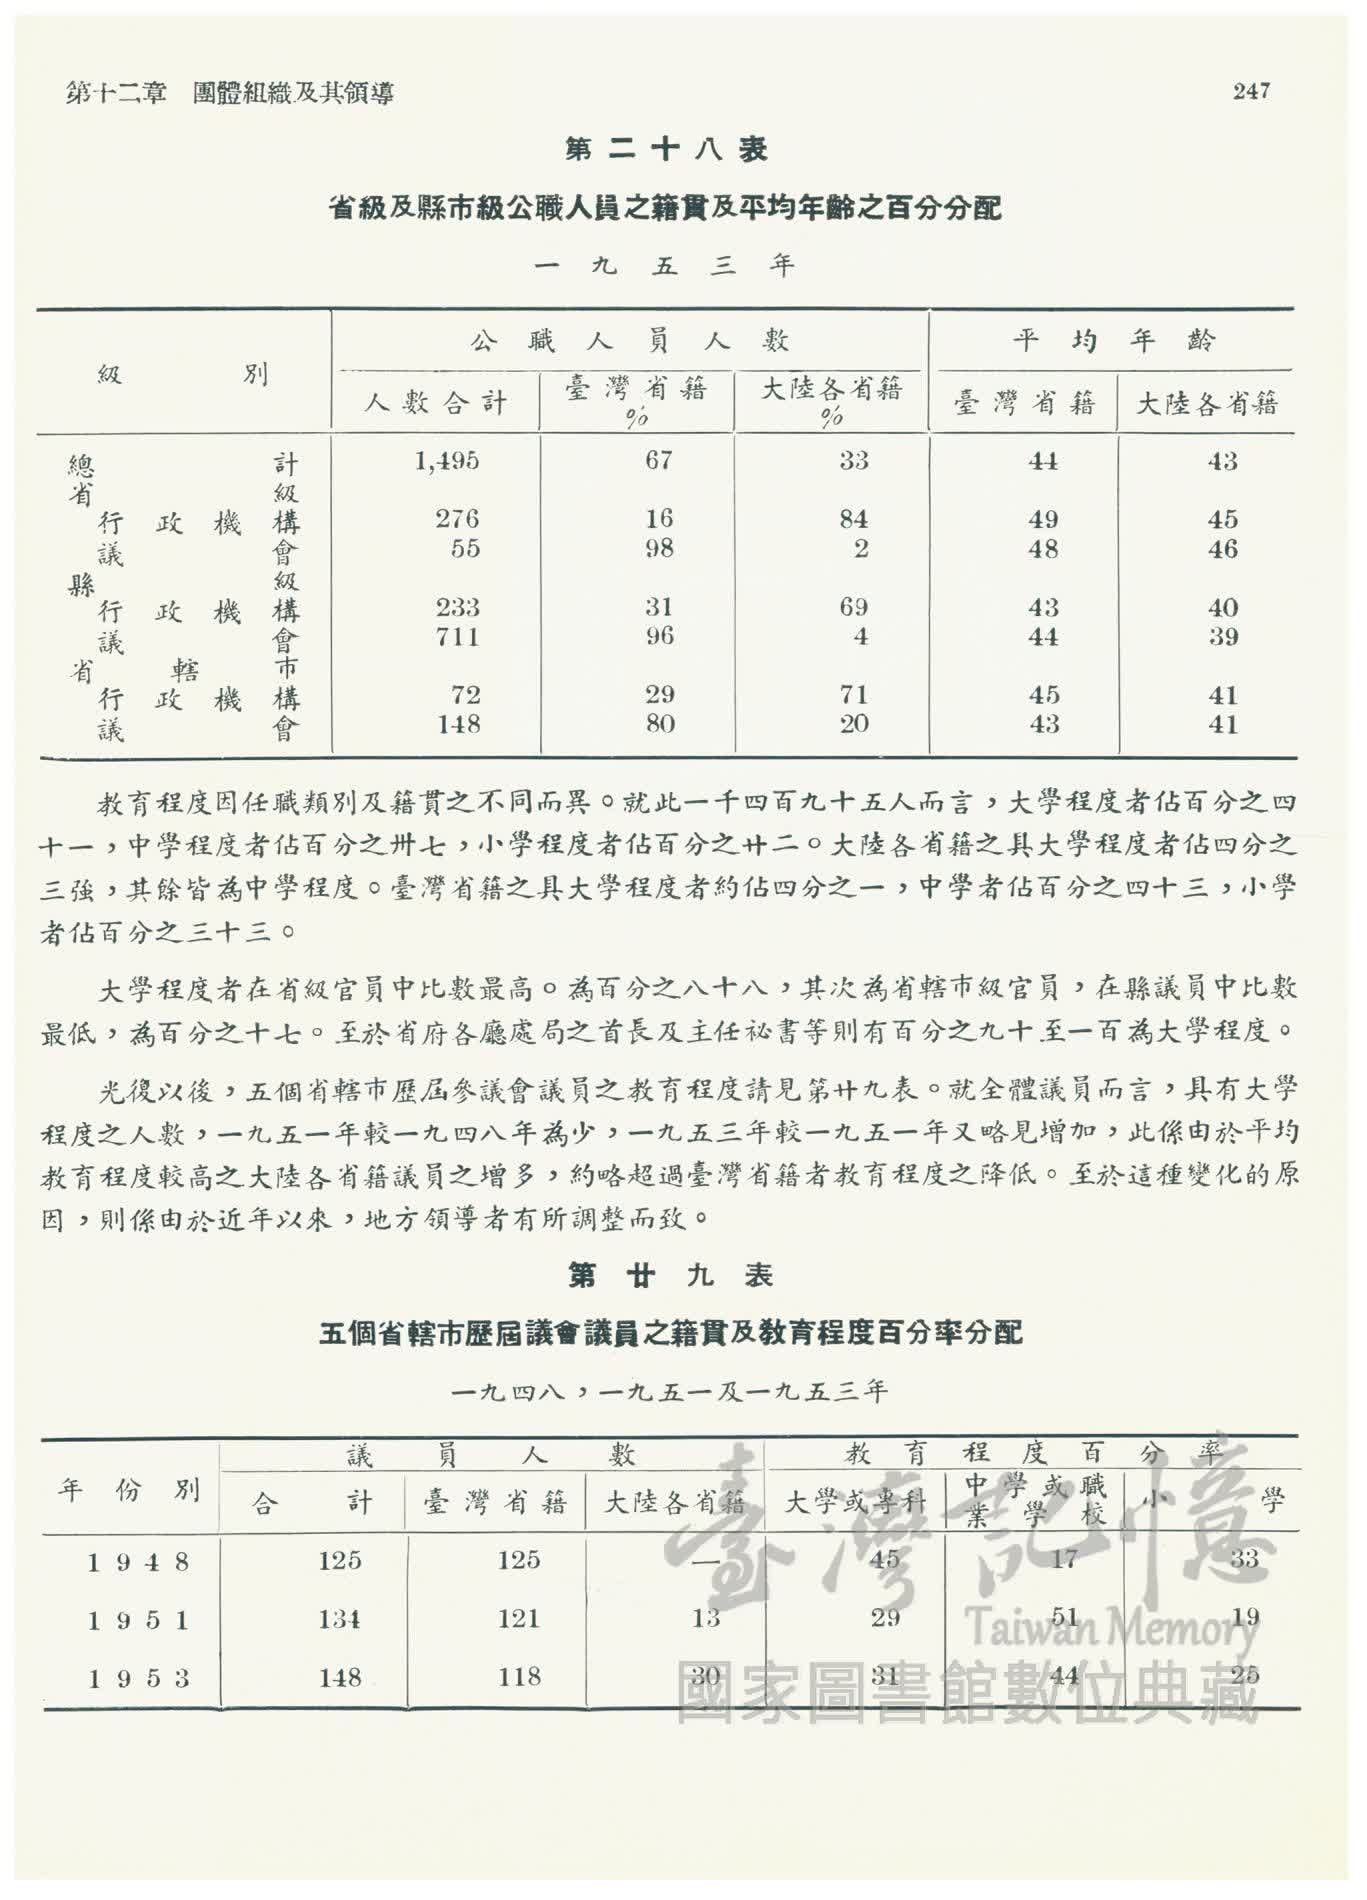 第十二章　團體組織及其領導　247
第二十八表
省級及縣市級公職人員之籍貫及平均年齡之百分分配
一九五三年
級別　公職人員人數　平均年齡
人數合計　臺灣省籍%　大陸各省籍%　臺灣省籍　大陸各省籍
總計　1,495　67　33　44　43
省級
行政機構　276　16　84　49　45
議會　55　98　2　48　46
縣級
行政機構　233　31　69　43　40
議會　711　96　4　44　39
省轄市
行政機構　72　29　71　45　41
議會　148　80　20　43　41
教育程度因任職類別及籍貫之不同而異。就此一千四百九十五人而言，大學程度者佔百分之四
十一，中學程度者佔百分之卅七，小學程度者佔百分之廿二。大陸各省籍之具大學程度者佔四分之
三強，其餘皆為中學程度。臺灣省籍之具大學程度者約佔四分之一，中學者佔百分之四十三，小學
者佔百分之三十三。
大學程度者在省級官員中比數最高。為百分之八十八，其次為省轄市級官員，在縣議員中比數
最低，為百分之十七。至於省府各廳處局之首長及主任祕書等則有百分之九十至一百為大學程度。
光復以後，五個省轄市歷屆參議會議員之教育程度請見第廿九表。就全體議員而言，具有大學
程度之人數，一九五一年較一九四八年為少，一九五三年較一九五一年又略見增加，此係由於平均
教育程度較高之大陸各省籍議員之增多，約略超過臺灣省籍者教育程度之降低。至於這種變化的原
因，則係由於近年以來，地方領導者有所調整而致。
第廿九表
五個省轄市歷屆議會議員之籍貫及教育程度百分率分配
一九四八，一九五一及一九五三年
年份別　議員人數　教育程度百分率
合計　臺灣省籍　大陸各省籍　大學或專科　中學或職業學校　小學
1948　125　125　—　45　17　33
1951　134　121　13　29　51　19
1953　148　118　30　31　44　25
臺灣記憶
Taiwan Memory
國家圖書館數位典藏